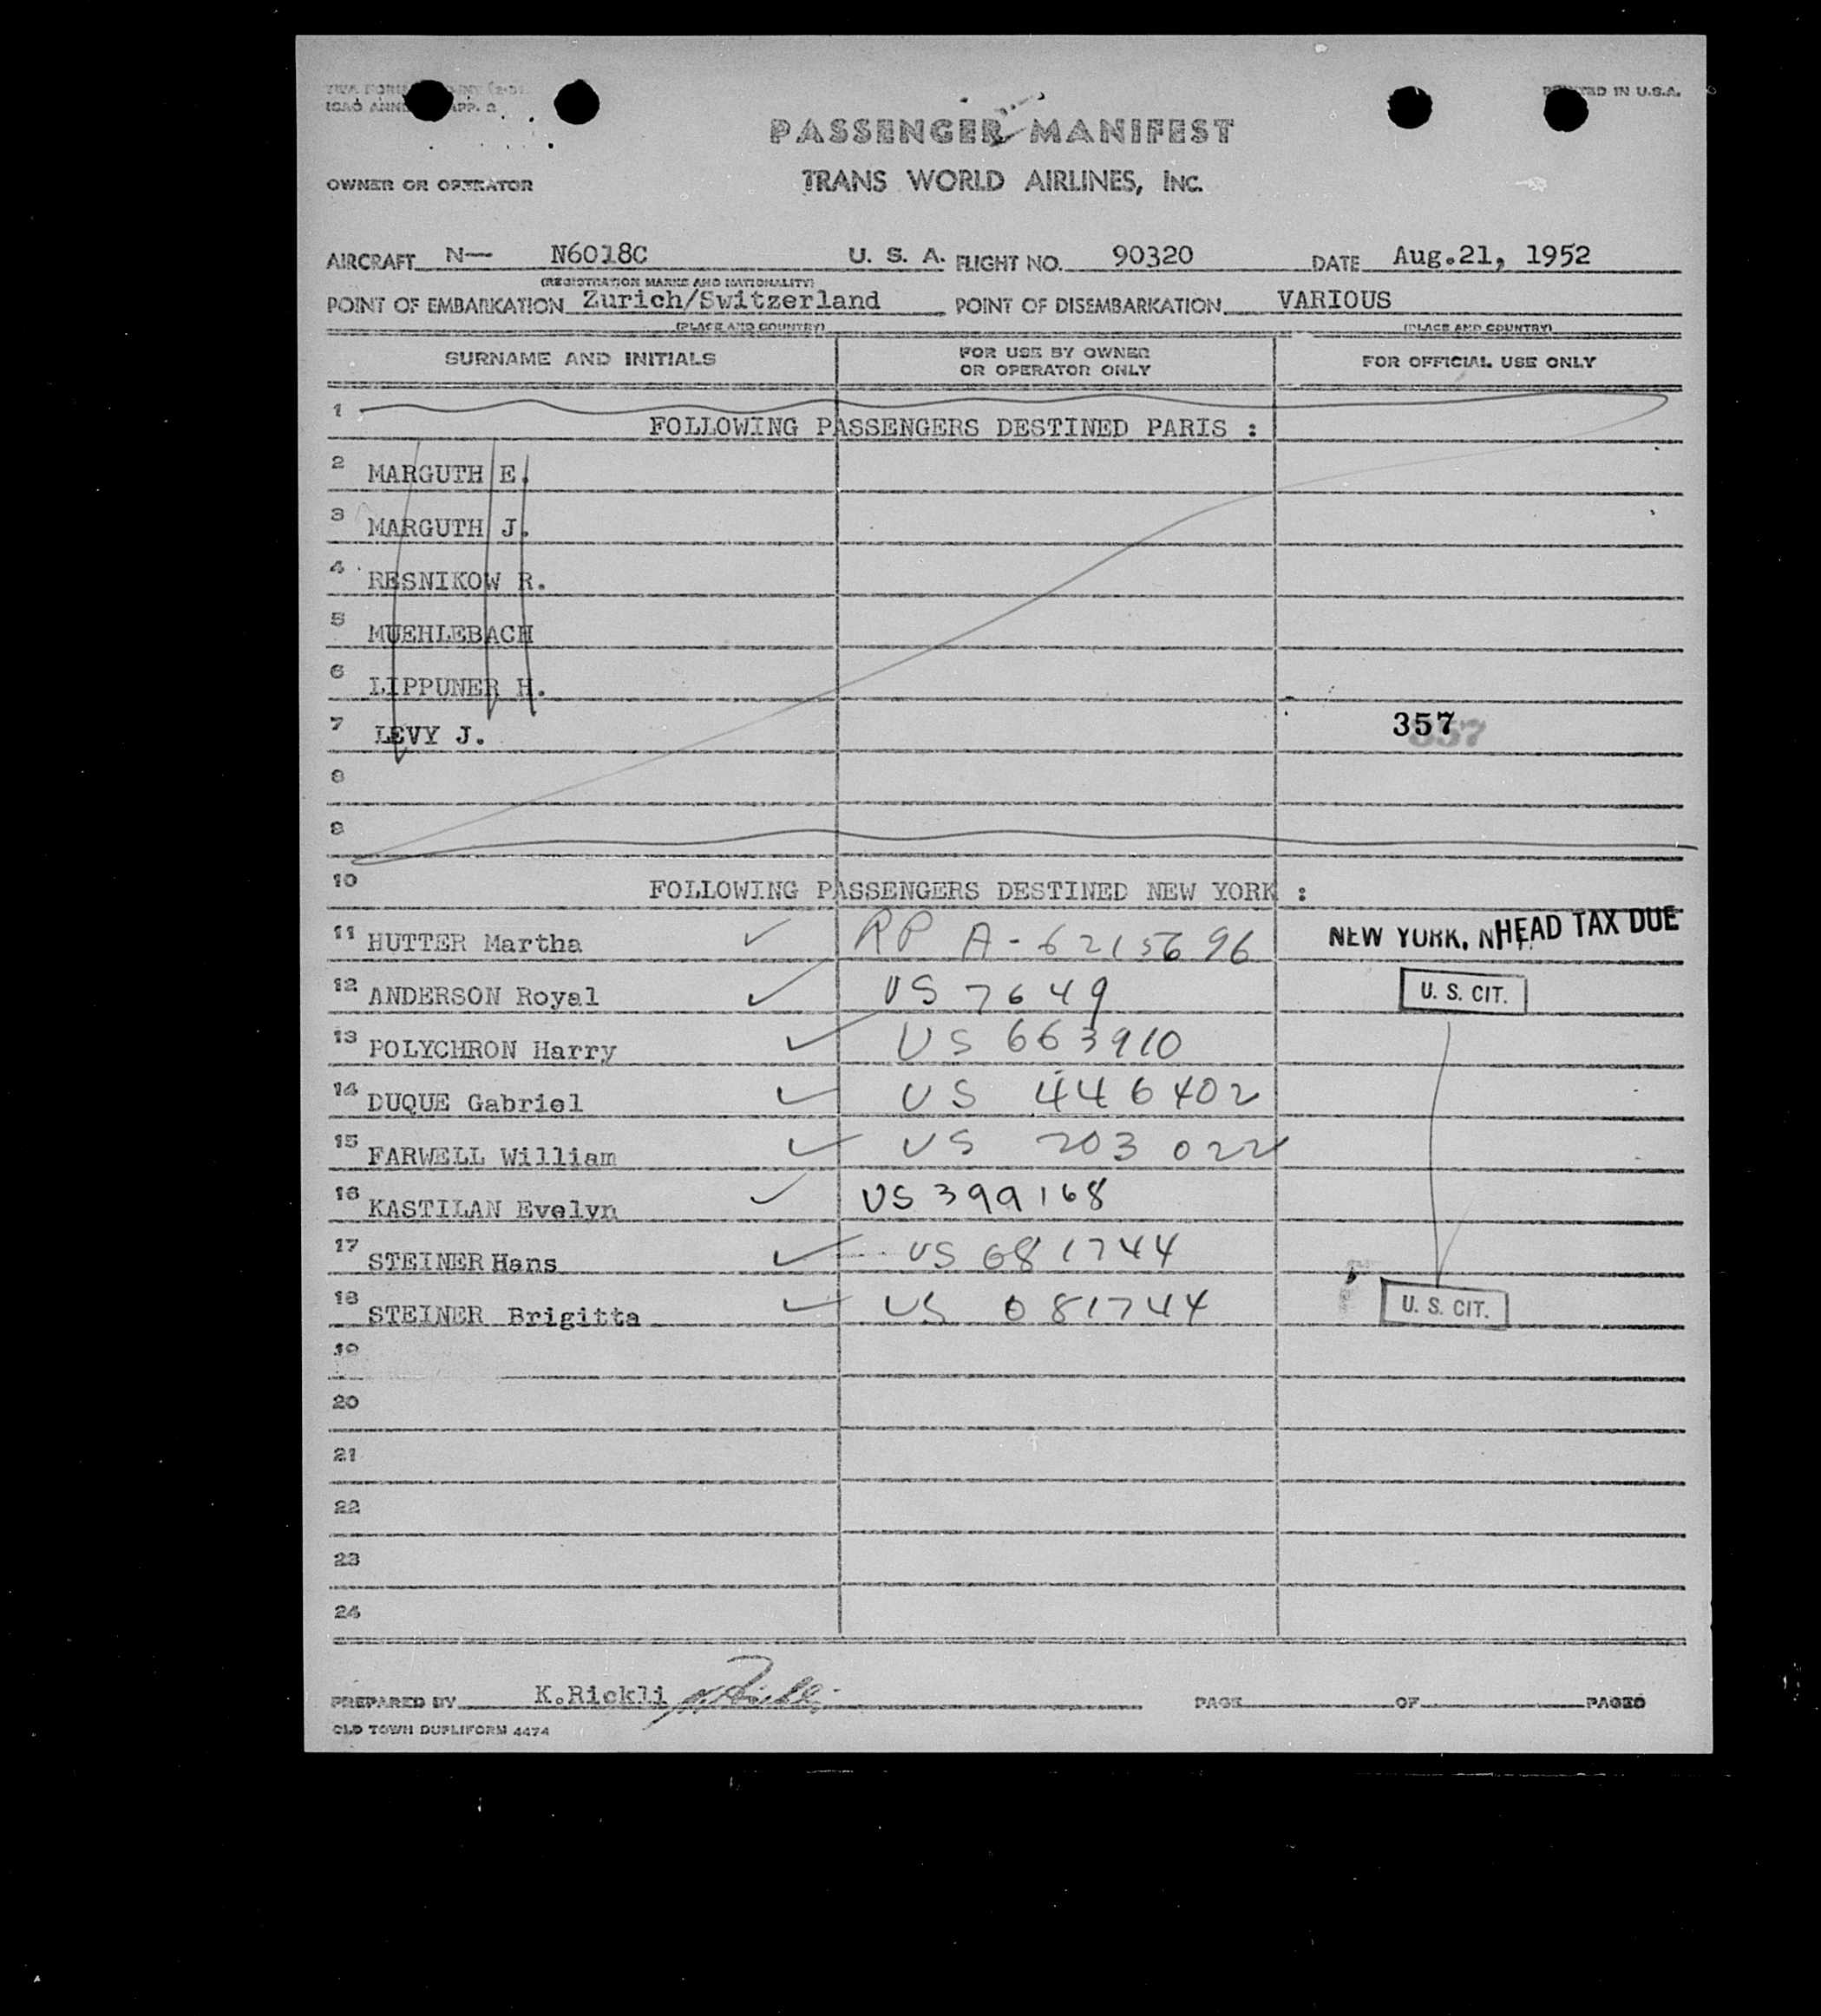 PRINTED IN U.S.A.
PASSENGER MANIFEST
OWNER OR OPERATOR TRANS WORLD AIRLINES, INC.
AIRCRAFT N— N6018C U. S. A. FLIGHT NO. 90320 DATE Aug.21, 1952
(REGISTRATION MARKS AND NATIONALITY)
POINT OF EMBARKATION Zurich/Switzerland POINT OF DISEMBARKATION VARIOUS
(PLACE AND COUNTRY) (PLACE AND COUNTRY)
SURNAME AND INITIALS FOR USE BY OWNER OR OPERATOR ONLY FOR OFFICIAL USE ONLY
1 FOLLOWING PASSENGERS DESTINED PARIS :
2 MARGUTH E.
3 MARGUTH J.
4 RESNIKOW R.
5 MUEHLEBACH
6 LIPPUNER H.
7 LEVY J. 357
8
9
10 FOLLOWING PASSENGERS DESTINED NEW YORK :
11 HUTTER Martha RP A-6215696 NEW YORK, N HEAD TAX DUE
12 ANDERSON Royal US 7649 U. S. CIT.
13 POLYCHRON Harry US 663910
14 DUQUE Gabriel US 446402
15 FARWELL William US 203022
16 KASTILAN Evelyn US 399168
17 STEINER Hans US 681744
18 STEINER Brigitta US 081744 U. S. CIT.
19
20
21
22
23
24
PREPARED BY K.Rickli PAGE OF PAGES
OLD TOWN DUPLIFORM 4474